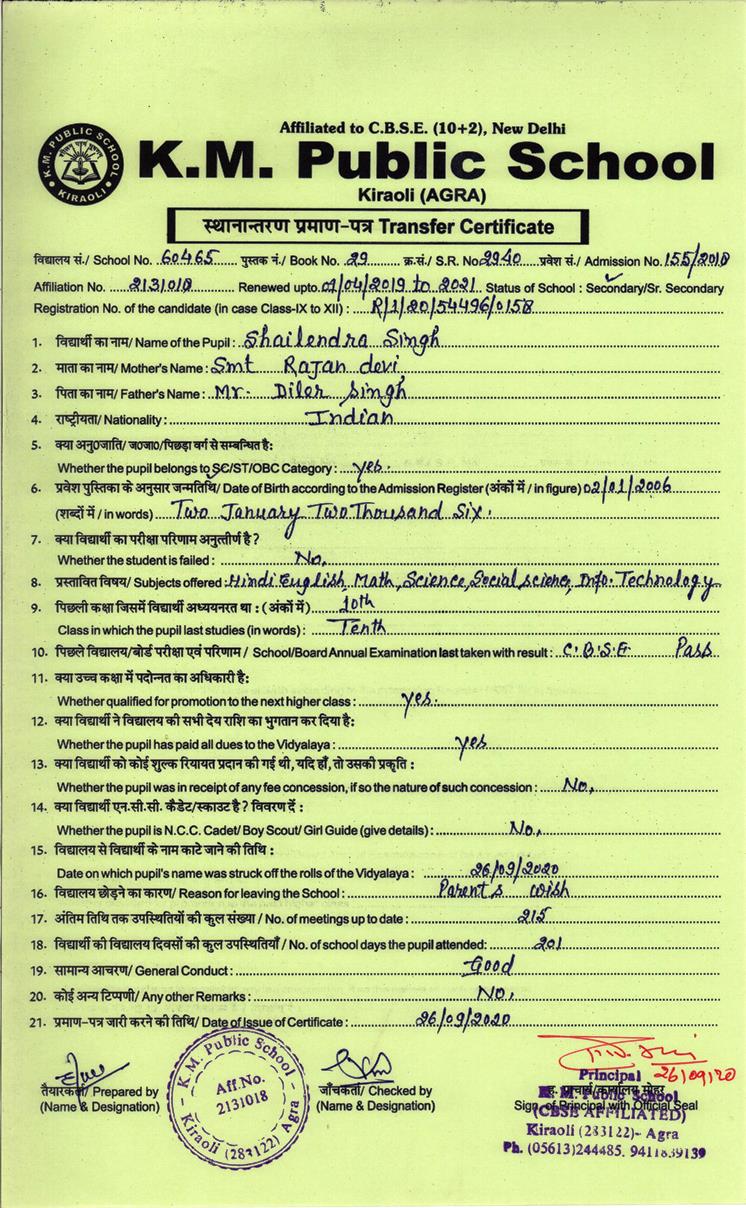 Affiliated to C.B.S.E. (10+2), New Delhi
K.M. PUBLIC SCHOOL
KIRAOLI
K.M. Public School
Kiraoli (AGRA)
स्थानान्तरण प्रमाण-पत्र Transfer Certificate
विद्यालय सं./ School No. 60465 पुस्तक नं./ Book No. 29 क्र.सं./ S.R. No. 2940 प्रवेश सं./ Admission No. 155/2018
Affiliation No. 2131018 Renewed upto. 01/04/2019 to 2021 Status of School : Secondary/Sr. Secondary
Registration No. of the candidate (in case Class-IX to XII) : R/1/20/54496/0158
1. विद्यार्थी का नाम/ Name of the Pupil : Shailendra Singh
2. माता का नाम/ Mother's Name : Smt Rajan devi
3. पिता का नाम/ Father's Name : Mr. Diler Singh
4. राष्ट्रीयता/ Nationality : Indian
5. क्या अनु0जाति/ ज0जा0/पिछड़ा वर्ग से सम्बन्धित है:
Whether the pupil belongs to SC/ST/OBC Category : yes.
6. प्रवेश पुस्तिका के अनुसार जन्मतिथि/ Date of Birth according to the Admission Register (अंकों में / in figure) 02/01/2006
(शब्दों में / in words) Two January Two Thousand Six.
7. क्या विद्यार्थी का परीक्षा परिणाम अनुत्तीर्ण है ?
Whether the student is failed : No.
8. प्रस्तावित विषय/ Subjects offered : Hindi English, Math, Science, Social science, Info. Technology
9. पिछली कक्षा जिसमें विद्यार्थी अध्ययनरत था : (अंकों में) 10th
Class in which the pupil last studies (in words) : Tenth
10. पिछले विद्यालय/बोर्ड परीक्षा एवं परिणाम / School/Board Annual Examination last taken with result : C.B.S.E Pass
11. क्या उच्च कक्षा में पदोन्नत का अधिकारी है:
Whether qualified for promotion to the next higher class : yes.
12. क्या विद्यार्थी ने विद्यालय की सभी देय राशि का भुगतान कर दिया है:
Whether the pupil has paid all dues to the Vidyalaya : yes
13. क्या विद्यार्थी को कोई शुल्क रियायत प्रदान की गई थी, यदि हाँ, तो उसकी प्रकृति :
Whether the pupil was in receipt of any fee concession, if so the nature of such concession : No.
14. क्या विद्यार्थी एन.सी.सी. कैडेट/स्काउट है ? विवरण दें :
Whether the pupil is N.C.C. Cadet/ Boy Scout/ Girl Guide (give details) : No.
15. विद्यालय से विद्यार्थी के नाम काटे जाने की तिथि :
Date on which pupil's name was struck off the rolls of the Vidyalaya : 26/09/2020
16. विद्यालय छोड़ने का कारण/ Reason for leaving the School : Parent's wish
17. अंतिम तिथि तक उपस्थितियों की कुल संख्या / No. of meetings up to date : 215
18. विद्यार्थी की विद्यालय दिवसों की कुल उपस्थितियाँ / No. of school days the pupil attended: 201
19. सामान्य आचरण/ General Conduct : Good
20. कोई अन्य टिप्पणी/ Any other Remarks : No.
21. प्रमाण-पत्र जारी करने की तिथि/ Date of Issue of Certificate : 26/09/2020
K.M. Public School
Aff.No.
2131018
Kiraoli (283122) Agra
तैयारकर्ता/ Prepared by
(Name & Designation)
जाँचकर्ता/ Checked by
(Name & Designation)
26/09/20
Principal
ह. प्राचार्य/कार्यालय मोहर
K. M. Public School
Sign. of Principal with Official Seal
(CBSE AFFILIATED)
Kiraoli (283122)- Agra
Ph. (05613)244485. 9411839139